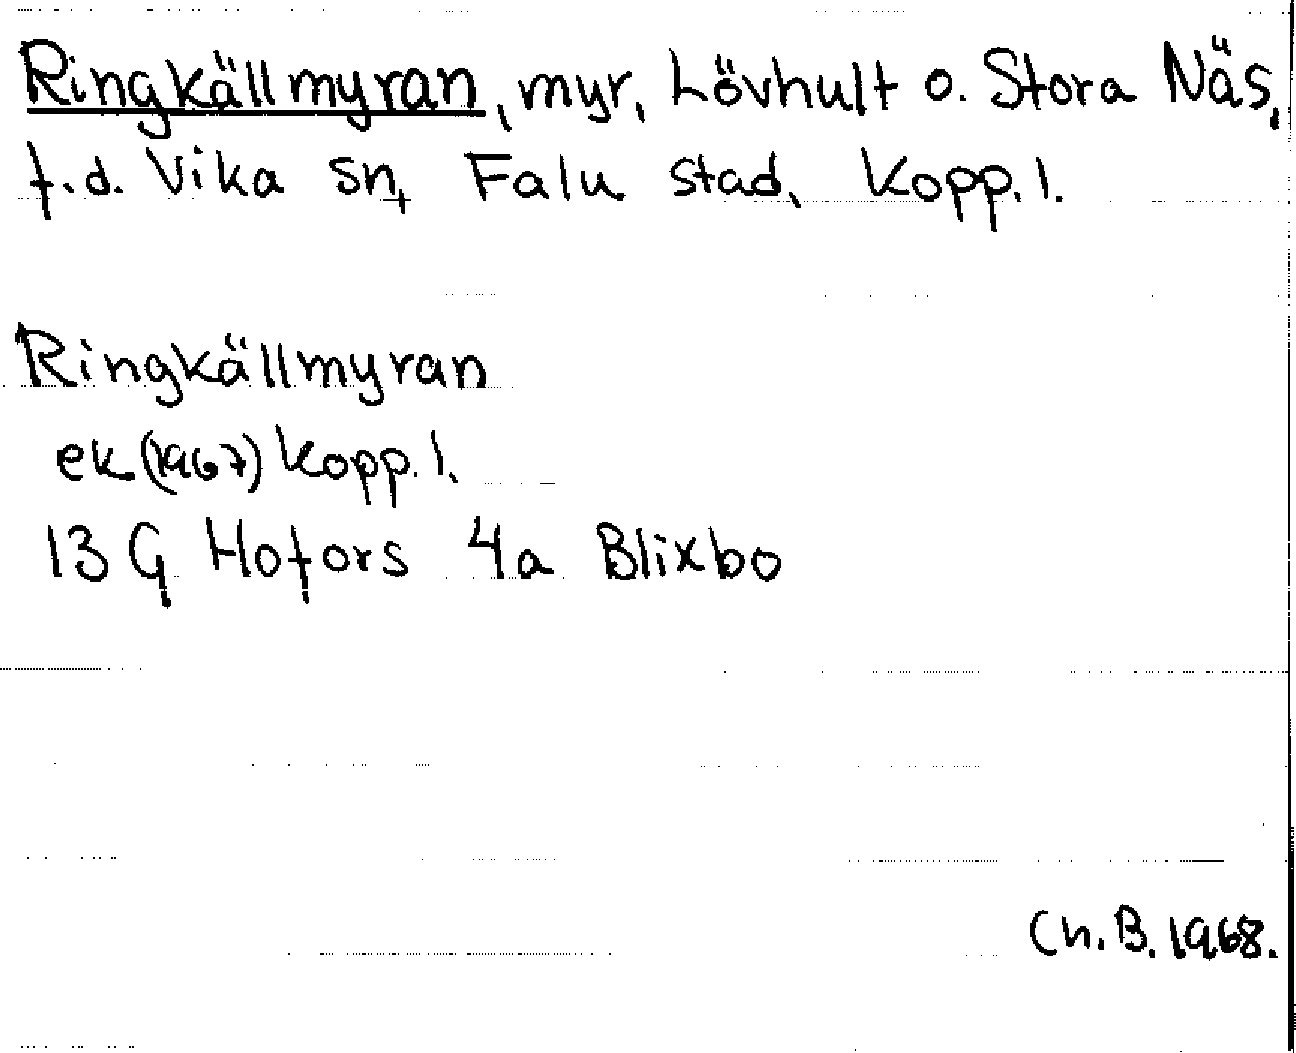 Ringkällmyran, myr, Lövhult o. Stora Näs,
f.d. Vika sn, Falu stad, Kopp. l.
Ringkällmyran
ek (1967) Kopp. l.
13 G Hofors 4a Blixbo
Ch. B. 1968.